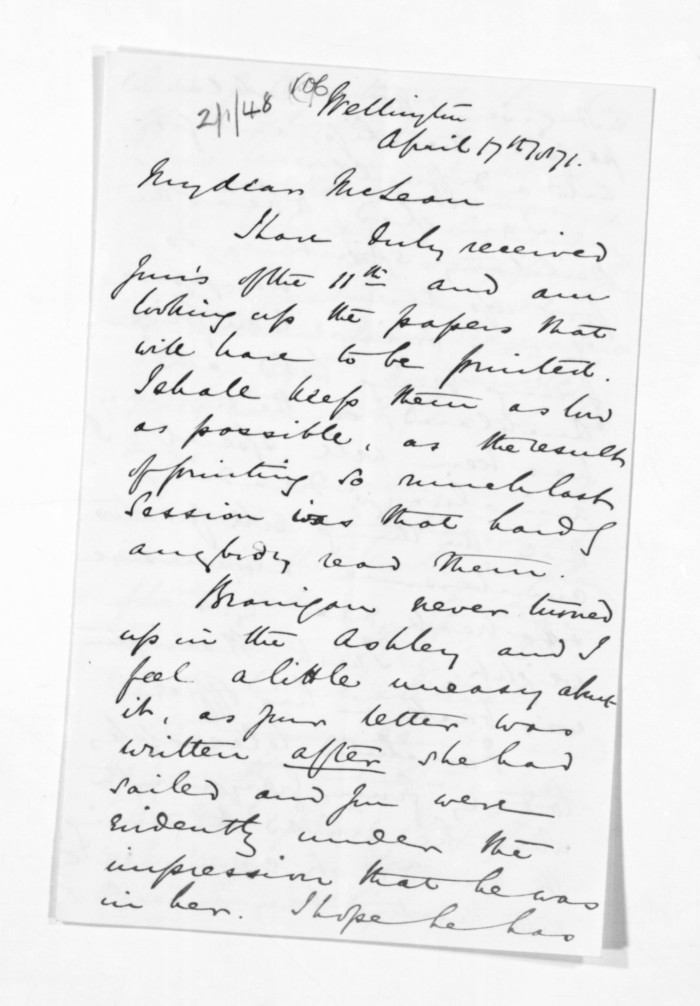 106
2/1/48
Wellington
April 17th/71.
My dear McLean
I have duly received
yours of the 11th and am
looking up the papers that
will have to be printed.
I shall keep them as low
as possible, as the result
of printing so much last
Session was that hardly
anybody read them.
Branigan never turned
up in the Ashley and I
feel a little uneasy about
it, as your letter was
written after she had
sailed and you were
evidently under the
impression that he was
in her. I hope he has